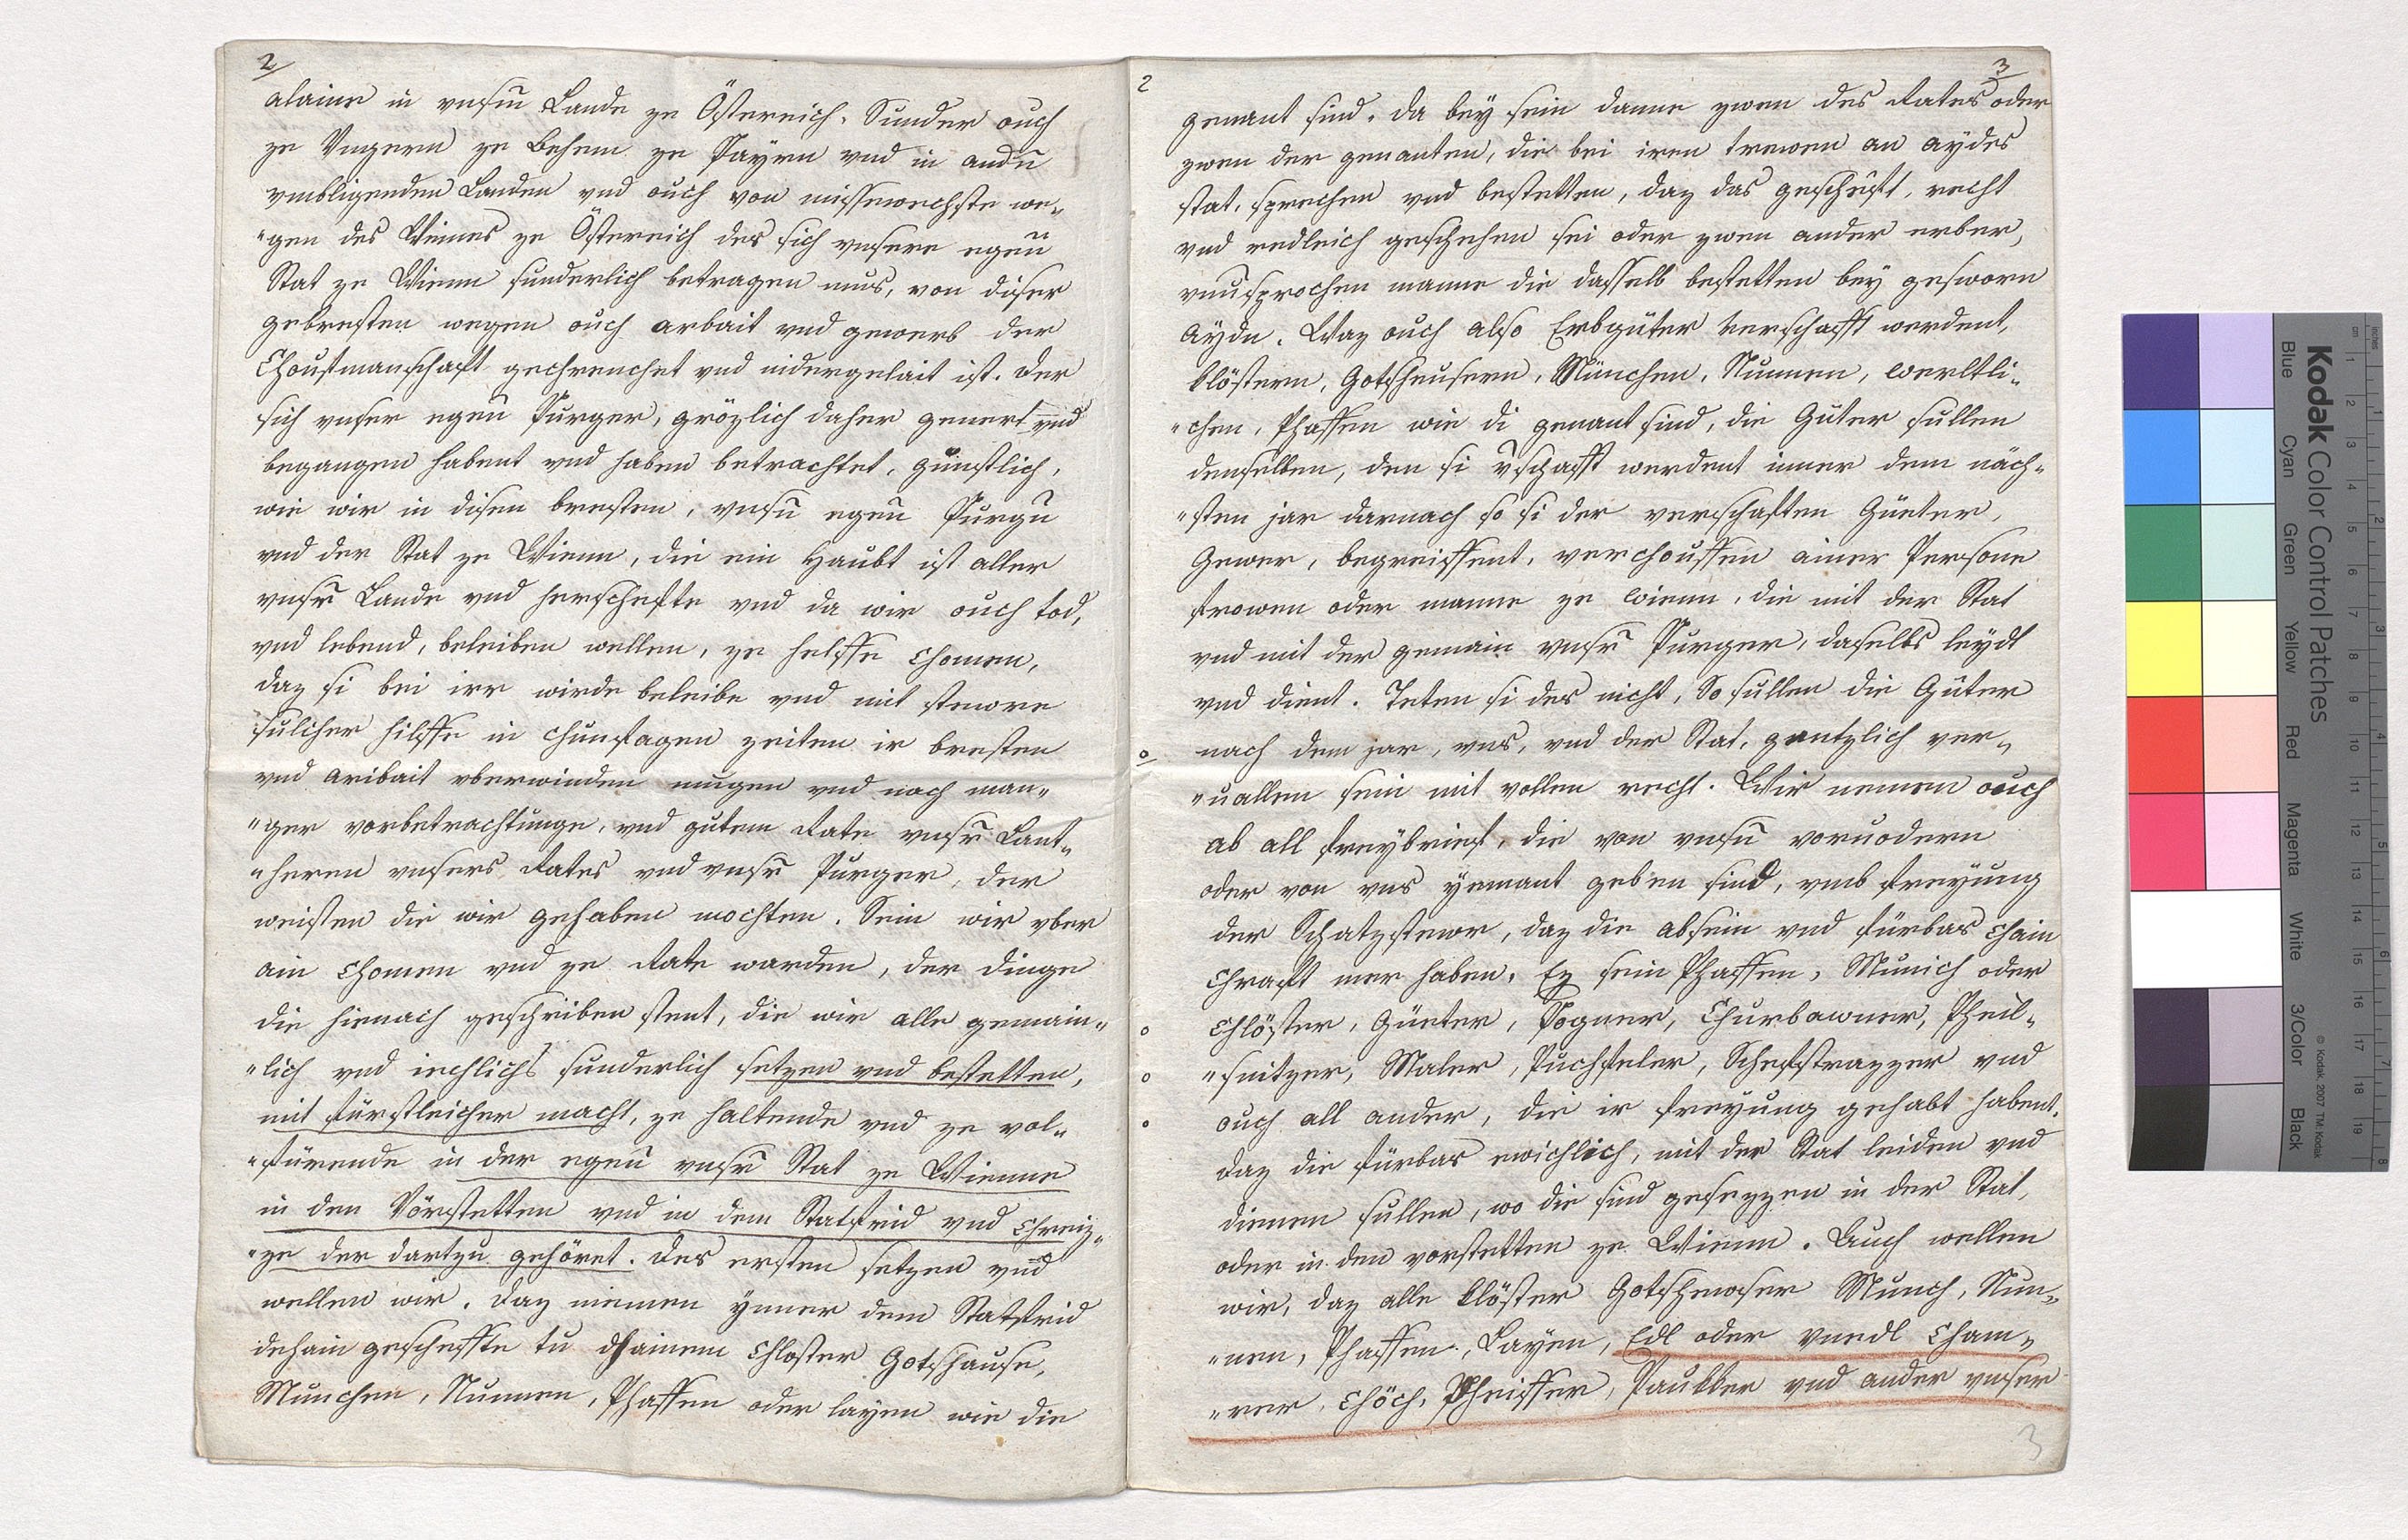 2
alaine in vnsm̅ Lande ze Österreich, Sunder ouch
ze Vngern ze Behem ze Payrn vnd in andn̅
vmbligenden Landen vnd ouch von missewechste we„
„gen des Weines ze Österreich des sich vnsere egen̅
Stat ze Wienn sunderlich betragen mus, von diser
gebresten wegen ouch arbait vnd gewerb der
Choufmanschaft gechrenchet vnd nidergelait ist. Der
sich vnser egen̅ Purger, grözlich daher genert vnd
begangen habent vnd haben betrachtet, günstlich,
wie wir in disen bresten, vnsn̅ egen̅ Purgn̅
vnd der Stat ze Wienn, die ein Haubt ist aller
vnsr̅ Lande vnd herschefte vnd da wir ouch tod,
vnd lebend, beleiben wellen, ze helffe chomen,
daz si bei irr wirde beleibe vnd mit stewre
sulicher hilffe in chunftagen zeiten ir bresten
vnd aribait vberwinden mugen vnd nach man„
„ger vorbetrachtunge, vnd gutem Rate vnsr̅ Lant„
„herren vnsers Rates vnd vnsr̅ Purger, der
weisten die wir gehaben mochten. Sein wir vber
ain chomen vnd ze Rate warden, der dinge
die hienach geschriben stent, die wir alle gemain„
„lich vnd iechlichs sunderlich setzen vnd bestetten,
mit fürstleicher macht, ze haltende vnd ze vol„
„fürende in der egen̅ vnsr̅ Stat ze Wienne
in den Vörstetten vnd in dem Statfrid vnd Chreiz„
„ze der dartzu gehöret. Des ersten setzen vnd
wellen wir. Daz niemen ynner dem Statfrid
dehain gescheffte tu dhainem Chloster Gotshause,
Munchen, Nunnen, Phaffen oder layen wie die
2
3
genant sind. Da bey sein danne zwen des Rates oder
zwen der genanten, die bei iren trewen an aydes
stat, sprechen vnd bestetten, daz das gescheft, recht
vnd redleich geschehen sei oder zwen ander erber,
vnu̅sprochen manne die dasselb bestetten bey gesworn
Ayde. Waz ouch also Erbgüter verschafft werdent,
klöstern, Gotsheusern, München, Nunnen, werltli„
„chen, Phaffen wie di genant sind, die Güter sullen
denselben, den si v̅schafft werdent inner dem näch„
„sten jar darnach so si der verschaften Güeter,
Gewer, begreiffent, verchouffen ainer Persone
frowen oder manne ze wienn, die mit der Stat
vnd mit der gemain vnsr̅ Purger, daselbs leydt
vnd dient. Teten si des nicht, So sullen die Güter
nach dem jar, vns, vnd der Stat, gentzlich ver„
„uallen sein mit vollem recht. Wir nemen ouch
ab all freybrief, die von vnsn̅ voruodern
oder von vns yemant geben sind, vmb freyung
der Schatzstewr, daz die absein vnd fürbas chain
Chraft mer haben, Ez sein Phaffen, Munich oder
Chlöster, Güeter, Pogner, Churbawner, Pheil„
„snitzer, Maler, Puchfeler, Schefstrazzer vnd
ouch all ander, die ir freyung gehabt habent.
daz die fürbas ewichlich, mit der Stat leiden vnd
dienen sullen, wo die sind gesezzen in der Stat,
oder in den vorstetten ze Wienn. Auch wellen
wir, daz alle klöster Gotshewser Munch, Nun„
„nen, Phaffen, Layen, Edl oder vnedl Cham„
„rer, Chöch, Pheiffer, Paukker vnd ander vnser
3
Kodak Color Control Patches
Blue Cyan Green Yellow Red Magenta White 3/Color Black
© Kodak, 2007 TM: Kodak
inches 1 2 3 4 5 6 7 8
cm 1 2 3 4 5 6 7 8 9 10 11 12 13 14 15 16 17 18 19